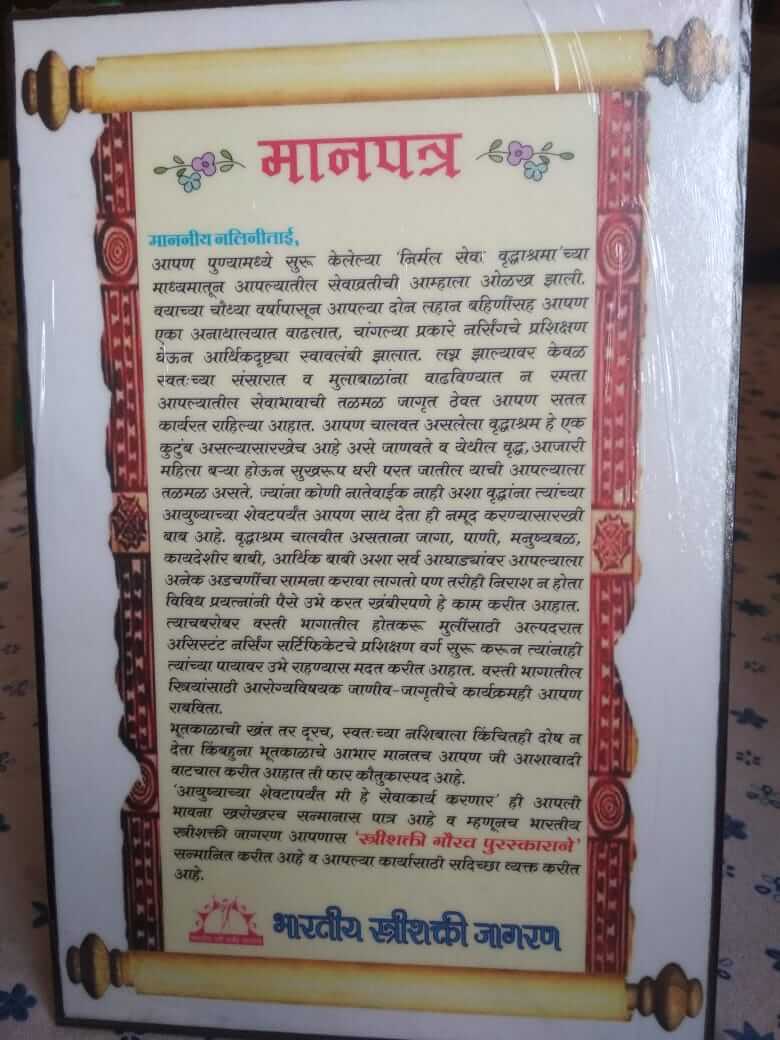 मानपत्र
माननीय नलिनीताई,
आपण पुण्यामध्ये सुरू केलेल्या 'निर्मल सेवा वृद्धाश्रमा'च्या
माध्यमातून आपल्यातील सेवाव्रतीची आम्हाला ओळख झाली.
वयाच्या चौथ्या वर्षापासून आपल्या दोन लहान बहिणींसह आपण
एका अनाथालयात वाढलात, चांगल्या प्रकारे नर्सिंगचे प्रशिक्षण
घेऊन आर्थिकदृष्ट्या स्वावलंबी झालात. लग्न झाल्यावर केवळ
स्वतःच्या संसारात व मुलाबाळांना वाढविण्यात न रमता
आपल्यातील सेवाभावाची तळमळ जागृत ठेवत आपण सतत
कार्यरत राहिल्या आहात. आपण चालवत असलेला वृद्धाश्रम हे एक
कुटुंब असल्यासारखेच आहे असे जाणवते व येथील वृद्ध, आजारी
महिला बऱ्या होऊन सुखरूप घरी परत जातील याची आपल्याला
तळमळ असते. ज्यांना कोणी नातेवाईक नाही अशा वृद्धांना त्यांच्या
आयुष्याच्या शेवटपर्यंत आपण साथ देता ही नमूद करण्यासारखी
बाब आहे. वृद्धाश्रम चालवीत असताना जागा, पाणी, मनुष्यबळ,
कायदेशीर बाबी, आर्थिक बाबी अशा सर्व आघाड्यांवर आपल्याला
अनेक अडचणींचा सामना करावा लागतो पण तरीही निराश न होता
विविध प्रयत्नांनी पैसे उभे करत खंबीरपणे हे काम करीत आहात.
त्याचबरोबर वस्ती भागातील होतकरू मुलींसाठी अल्पदरात
असिस्टंट नर्सिंग सर्टिफिकेटचे प्रशिक्षण वर्ग सुरू करून त्यांनाही
त्यांच्या पायावर उभे राहण्यास मदत करीत आहात. वस्ती भागातील
स्त्रियांसाठी आरोग्यविषयक जाणीव-जागृतीचे कार्यक्रमही आपण
राबविता.
भूतकाळाची खंत तर दूरच, स्वतःच्या नशिबाला किंचितही दोष न
देता किंबहुना भूतकाळाचे आभार मानतच आपण जी आशावादी
वाटचाल करीत आहात ती फार कौतुकास्पद आहे.
'आयुष्याच्या शेवटापर्यंत मी हे सेवाकार्य करणार' ही आपली
भावना खरोखरच सन्मानास पात्र आहे व म्हणूनच भारतीय
स्त्रीशक्ती जागरण आपणास 'स्त्रीशक्ती गौरव पुरस्काराने'
सन्मानित करीत आहे व आपल्या कार्यासाठी सदिच्छा व्यक्त करीत
आहे.
भारतीय स्त्रीशक्ती जागरण